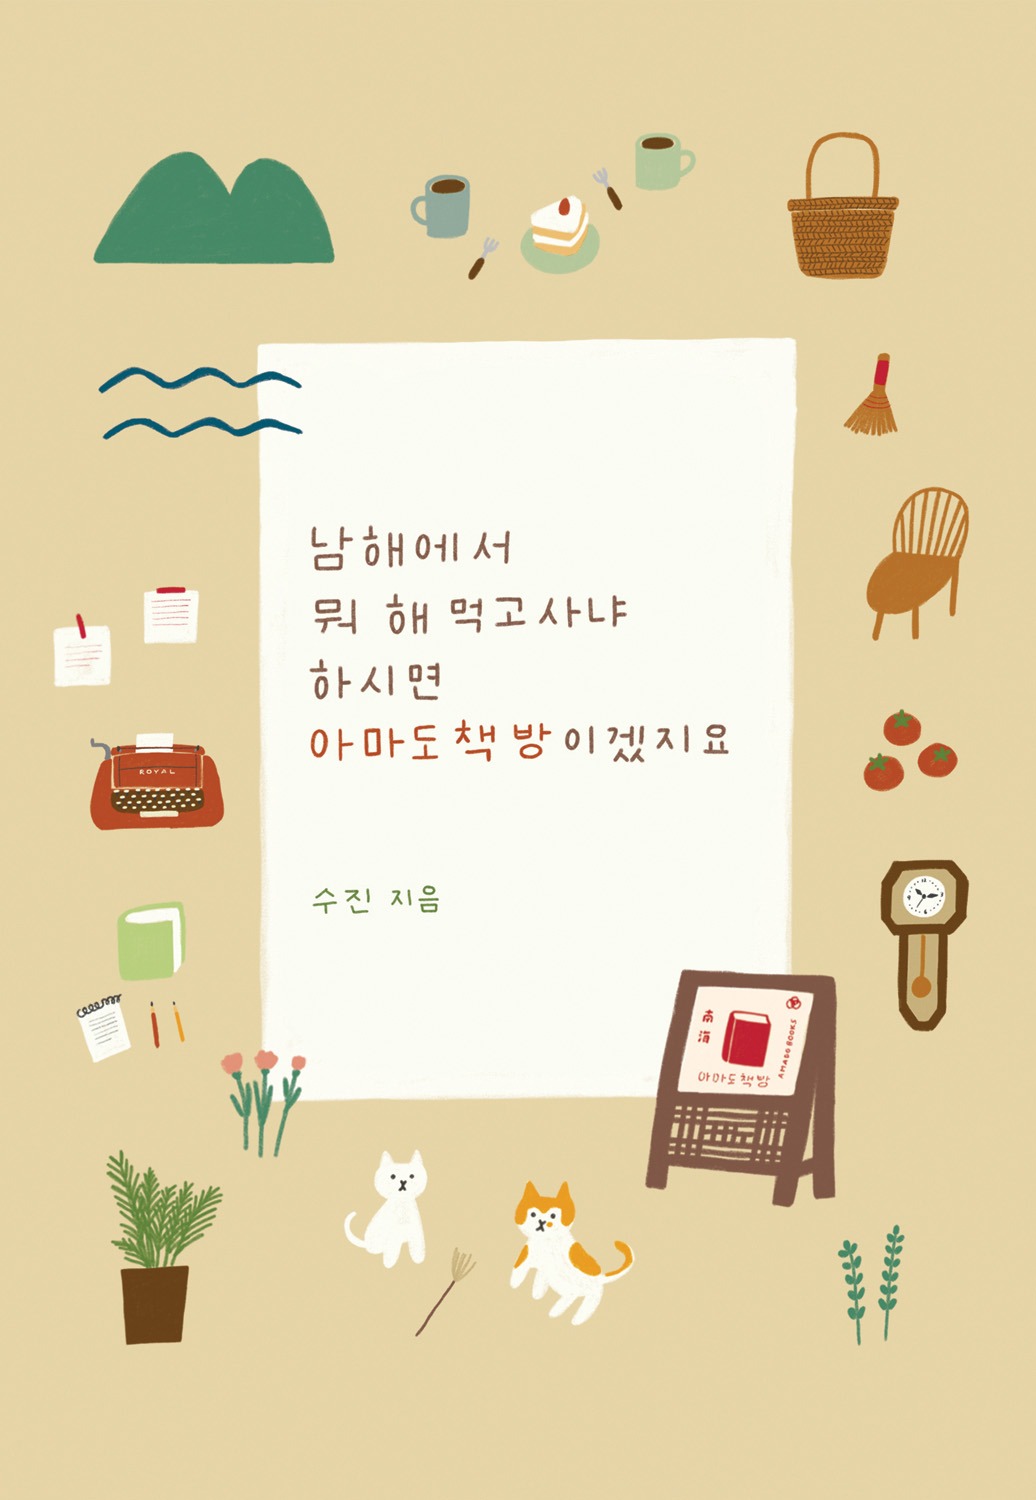 남해에서
뭐 해 먹고사냐
하시면
아마도책방이겠지요
수진 지음
ROYAL
南海
AMADO BOOKS
아마도책방